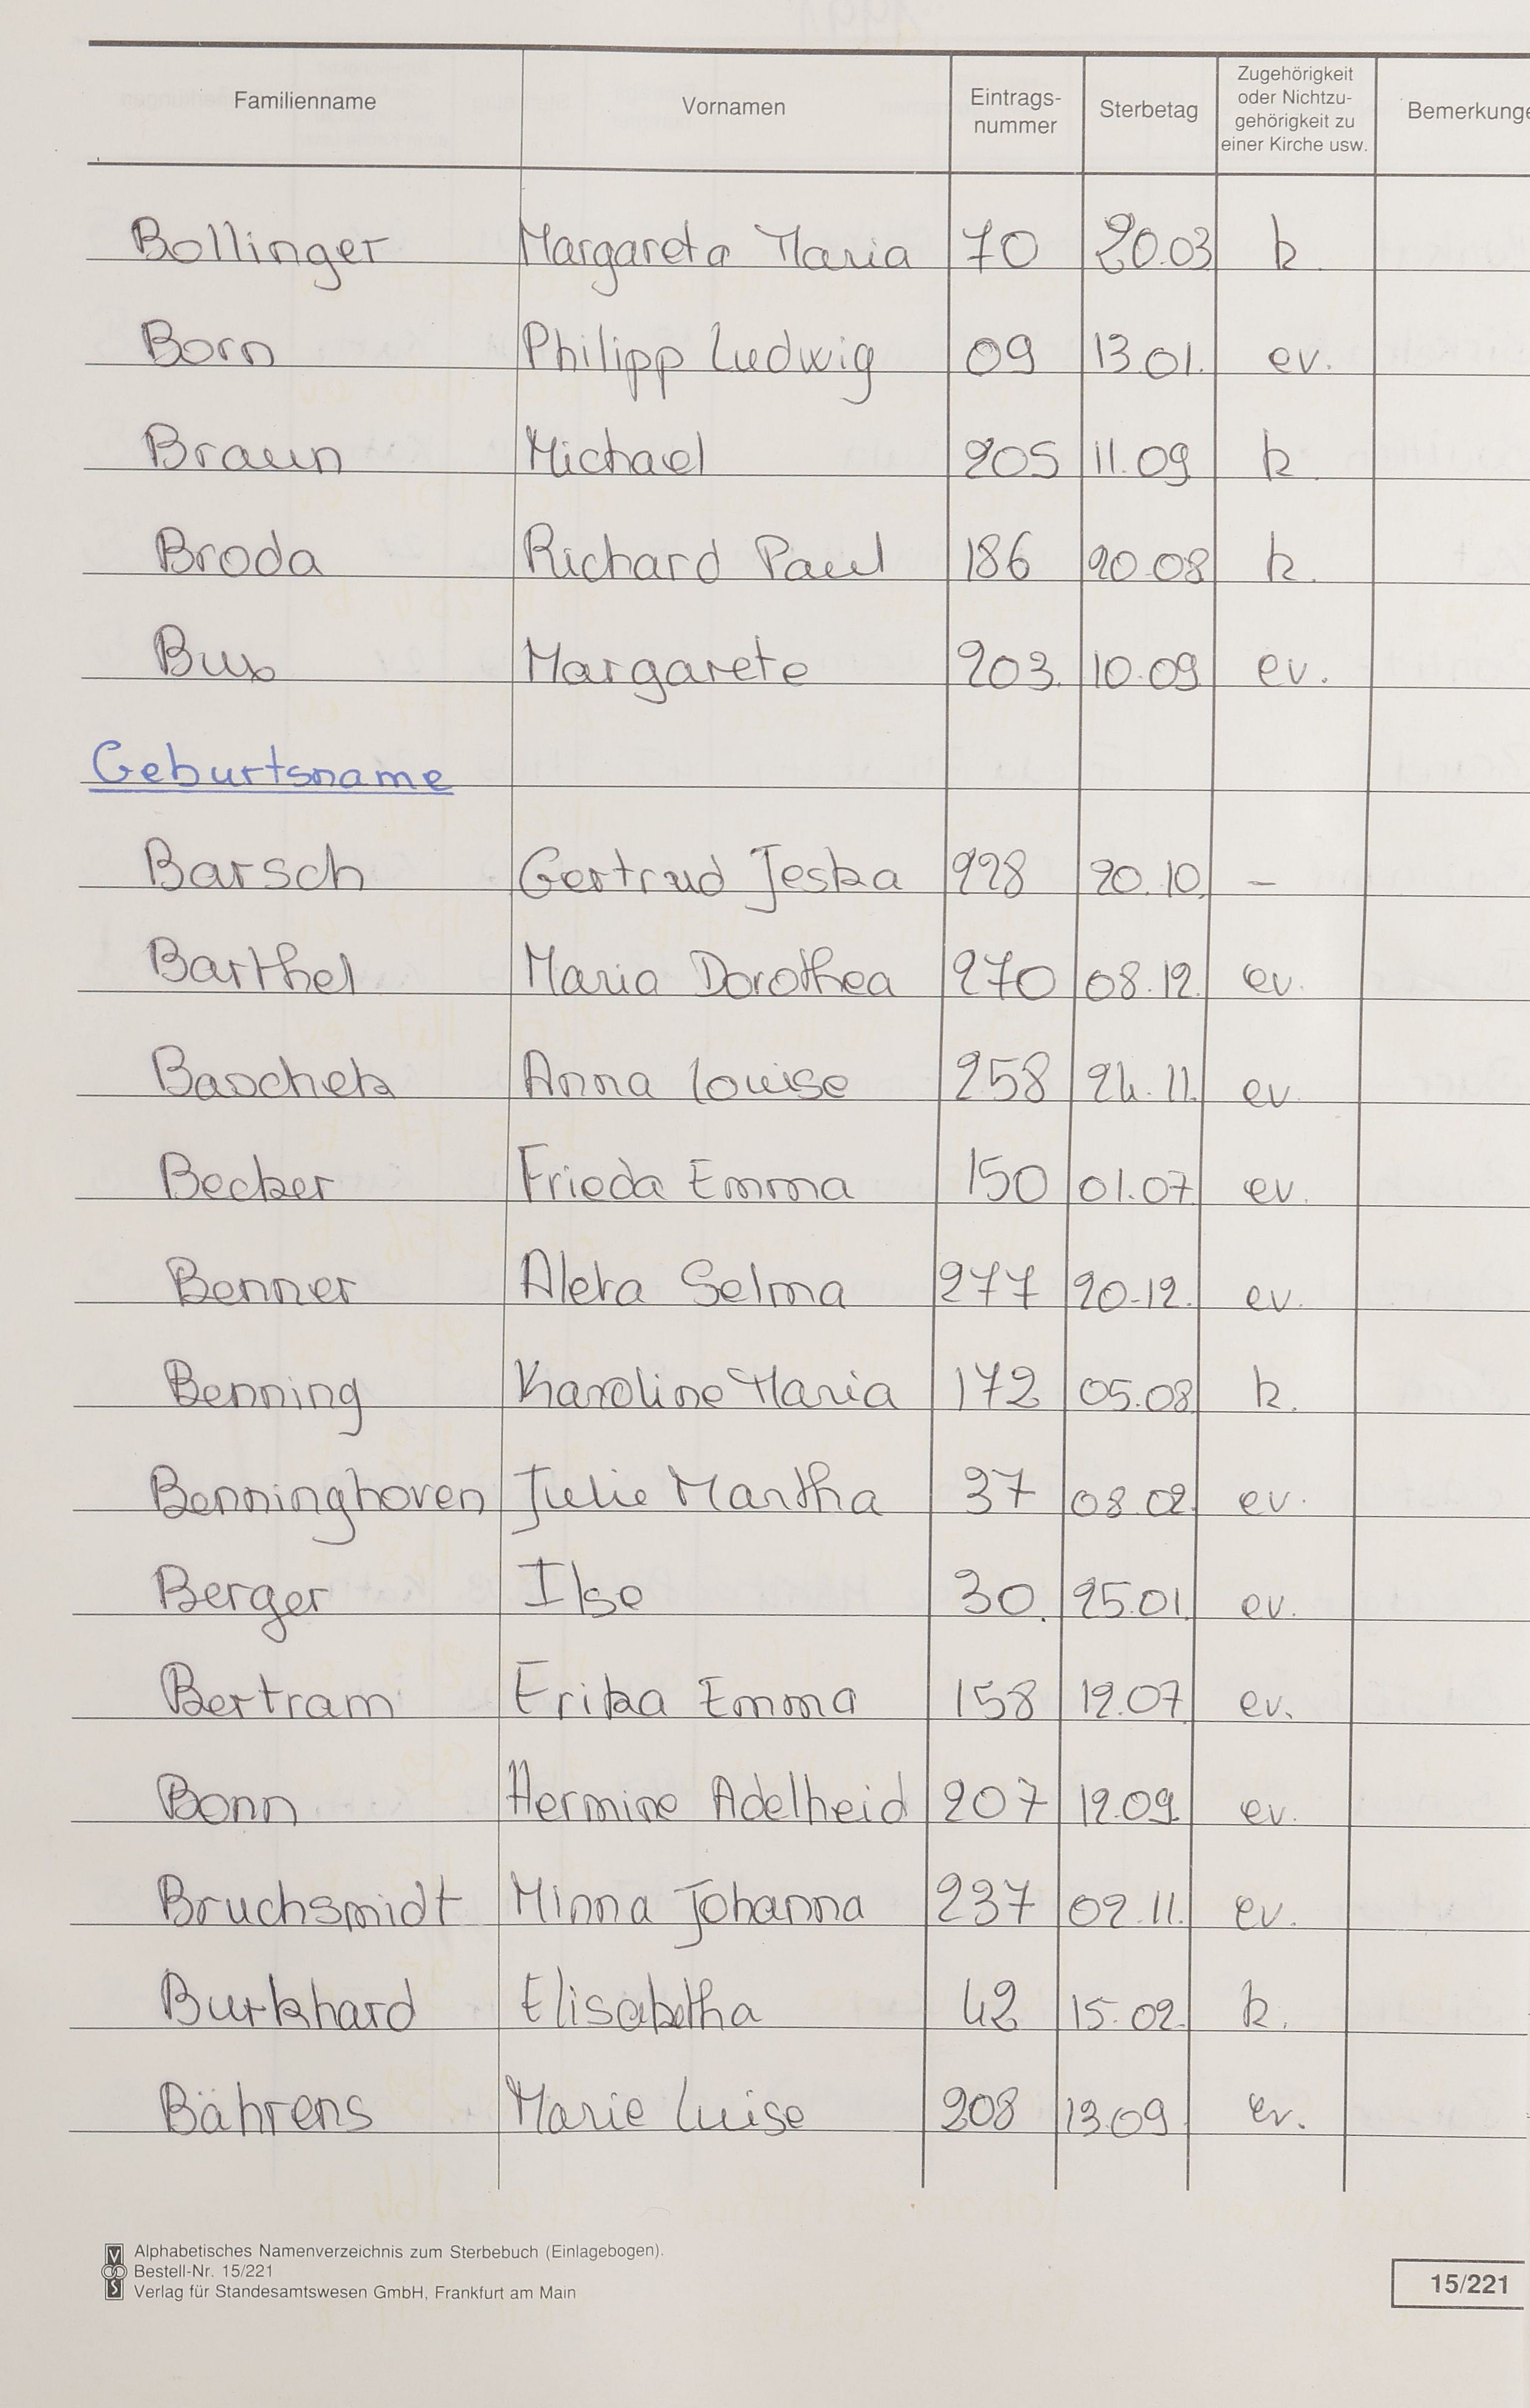 Familienname Vornamen Eintrags-nummer Sterbetag Zugehörigkeit oder Nichtzu-gehörigkeit zu einer Kirche usw. Bemerkunge
Bollinger Margareta Maria 70 20.03 k.
Born Philipp Ludwig 09 13 01. ev.
Braun Michael 205 11.09 k.
Broda Richard Paul 186 20.08 k.
Bux Margarete 203. 10.09. ev.
Geburtsname
Barsch Gertrud Jeska 228 20.10. –
Barthel Maria Dorothea 270 08.12. ev.
Baschek Anna Louise 258 24.11. ev
Becker Frieda Emma 150 01.07. ev.
Benner Aleta Selma 277 20.12. ev.
Benning Karoline Maria 172 05.08. k.
Benninghoven Julie Martha 37 08.02. ev.
Berger Ilse 30. 25.01. ev.
Bertram Erika Emma 158 12.07. ev.
Bonn Hermine Adelheid 207 12.09. ev.
Bruchsmidt Minna Johanna 237 02.11. ev.
Burkhard Elisabetha 42 15.02. k.
Bährens Marie Luise 208 13.09. ev.
Alphabetisches Namenverzeichnis zum Sterbebuch (Einlagebogen).
Bestell-Nr. 15/221
Verlag für Standesamtswesen GmbH, Frankfurt am Main
15/221